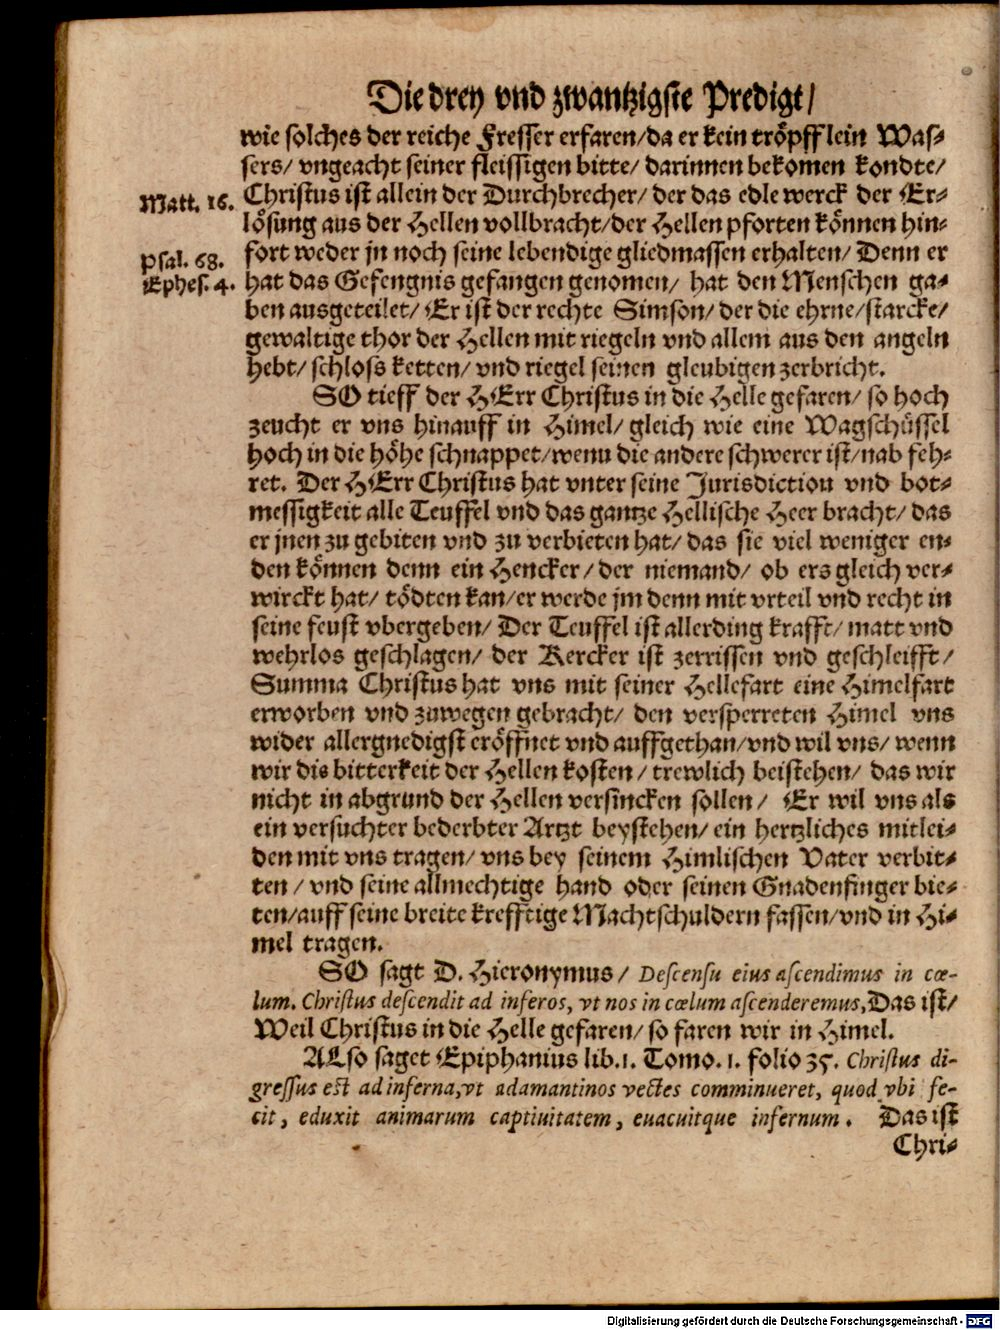 Die drey vnd zwantzigste Predigt/
wie solches der reiche Fresser erfaren/da er kein tröpfflein Was-
sers/ vngeacht seiner fleissigen bitte/ darinnen bekomen kondte/
Matt. 16. Christus ist allein der Durchbrecher/ der das edle werck der Er-
lösung aus der Hellen vollbracht/der Hellen pforten können hin-
Psal. 68. fort weder jn noch seine lebendige gliedmassen erhalten/ Denn er
Ephes. 4. hat das Gefengnis gefangen genomen/ hat den Menschen ga-
ben ausgeteilet/ Er ist der rechte Simson/ der die ehrne/starcke/
gewaltige thor der Hellen mit riegeln vnd allem aus den angeln
hebt/ schloss ketten/ vnd riegel seinen gleubigen zerbricht.
SO tieff der HErr Christus in die Helle gefaren/ so hoch
zeucht er vns hinauff in Himel/ gleich wie eine Wagschüssel
hoch in die höhe schnappet/wenn die andere schwerer ist/nab feh-
ret. Der HErr Christus hat vnter seine Jurisdiction vnd bot-
messigkeit alle Teuffel vnd das gantze Hellische Heer bracht/ das
er jnen zu gebiten vnd zu verbieten hat/ das sie viel weniger en-
den können denn ein Hencker/ der niemand/ ob ers gleich ver-
wirckt hat/ tödten kan/er werde jm denn mit vrteil vnd recht in
seine feust vbergeben/ Der Teuffel ist allerding krafft/ matt vnd
wehrlos geschlagen/ der Kercker ist zerrissen vnd geschleifft/
Summa Christus hat vns mit seiner Hellefart eine Himelfart
erworben vnd zuwegen gebracht/ den versperreten Himel vns
wider allergnedigst eröffnet vnd auffgethan/vnd wil vns/ wenn
wir die bitterkeit der Hellen kosten/ trewlich beistehen/ das wir
nicht in abgrund der Hellen versincken sollen/ Er wil vns als
ein versuchter bederbter Artzt beystehen/ ein hertzliches mitlei-
den mit vns tragen/ vns bey seinem Himlischen Vater verbit-
ten/ vnd seine allmechtige hand oder seinen Gnadenfinger bie-
ten/auff seine breite krefftige Machtschuldern fassen/vnd in Hi-
mel tragen.
SO sagt D. Hieronymus/ Descensu eius ascendimus in cœ-
lum. Christus descendit ad inferos, vt nos in cœlum ascenderemus, Das ist/
Weil Christus in die Helle gefaren/ so faren wir in Himel.
ALso saget Epiphanius lib. 1. Tomo. 1. folio 35. Christus di-
gressus est ad inferna, vt adamantinos vectes comminueret, quod vbi fe-
cit, eduxit animarum captiuitatem, euacuitque infernum. Das ist
Chri-
Digitalisierung gefördert durch die Deutsche Forschungsgemeinschaft - DFG